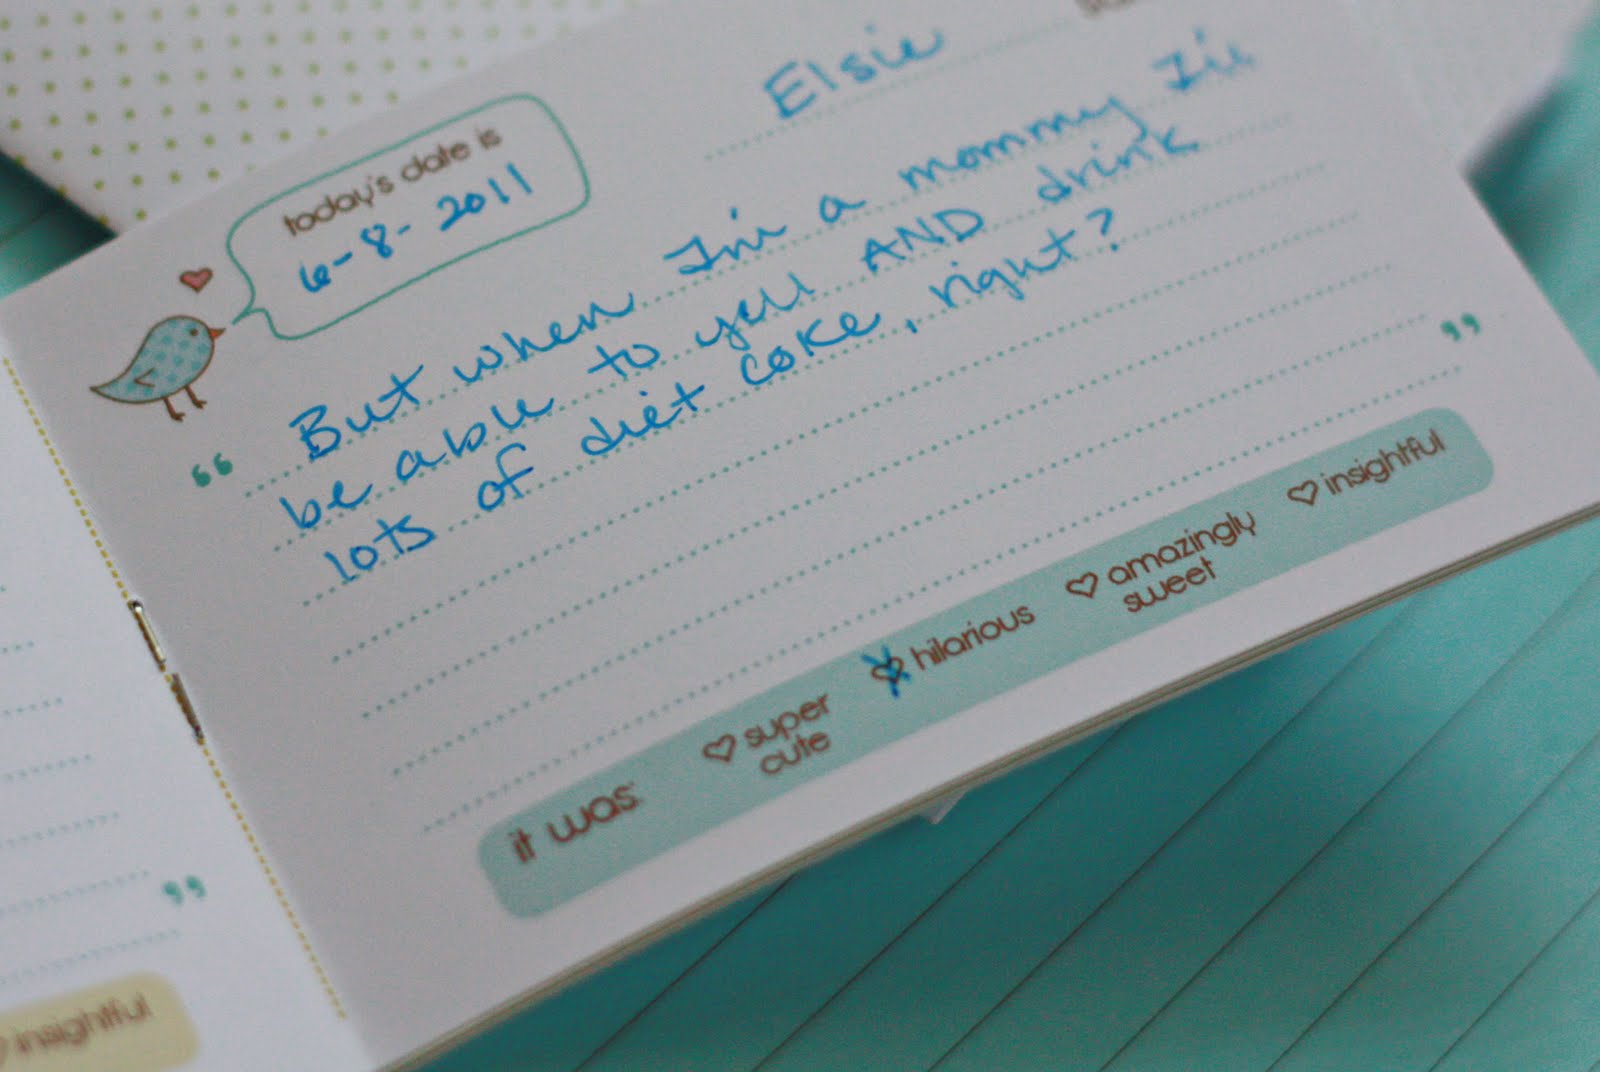 Elsie
today's date is
6-8-2011
“ But when I'm a mommy I'll
be able to yell AND drink
lots of diet coke, right?
”
it was:
super
cute
hilarious
amazingly
sweet
insightful
”
insightful